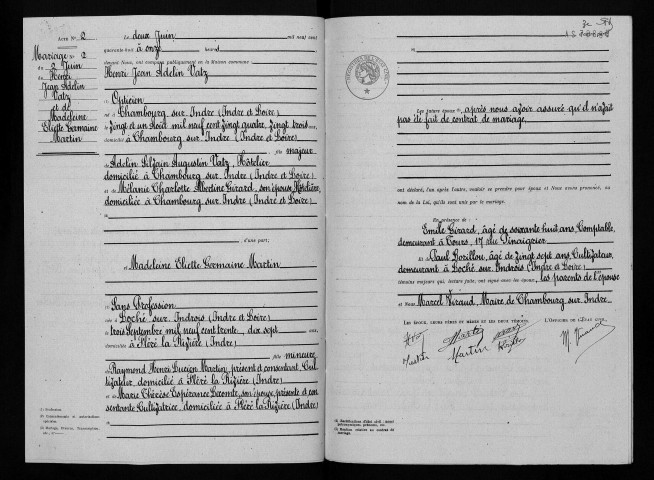 ACTE N° 2
Mariage N° 2
du 2 Juin
de Henri
Jean Adelin
Vatz
et de
Madeleine
Eliette Germaine
Martin
Le deux Juin mil neuf cent
quarante huit à onze heures
devant Nous, ont comparu publiquement en la Maison commune :
Henri Jean Adelin Vatz
Opticien
né à Chambourg sur Indre (Indre et Loire)
le vingt et un Août mil neuf cent vingt quatre, vingt trois ans,
domicilié à Chambourg sur Indre (Indre et Loire)
fils majeur
de Adelin Augustin Vatz, Hôtelier
domicilié à Chambourg sur Indre (Indre et Loire)
et de Mélanie Charlotte Albertine Girard, son épouse, Hôtelière
domiciliée à Chambourg sur Indre (Indre et Loire)
d'une part;
et Madeleine Eliette Germaine Martin
Sans Profession
née à Loché sur Indrois (Indre et Loire)
le trois Septembre mil neuf cent trente, dix sept ans,
domiciliée à Fléré la Rivière (Indre)
fille mineure
de Raymond Henri Lucien Martin, présent et consentant, Cul-
tivateur, domicilié à Fléré la Rivière (Indre)
et de Marie Thérèse Espérance Lecomte, son épouse, présente et con-
sentante, Cultivatrice, domiciliée à Fléré la Rivière (Indre)
Les futurs époux après nous avoir assuré qu'il n'avait
pas été fait de contrat de mariage
ont déclaré, l'un après l'autre, vouloir se prendre pour époux et Nous avons prononcé, au
nom de la Loi, qu'ils sont unis par le mariage.
En présence de :
Emile Girard, âgé de soixante huit ans, Comptable,
demeurant à Tours, 17 rue
Et Paul, âgé de vingt sept ans, Cultivateur,
demeurant à Loché sur Indrois (Indre et Loire)
témoins majeurs qui, lecture faite, ont signé avec les époux, les parents de l'épouse
et Nous Marcel Viraud, Maire de Chambourg sur Indre.
LES ÉPOUX, LEURS PÈRES ET MÈRES ET LES DEUX TÉMOINS,
L'OFFICIER DE L'ÉTAT CIVIL,
Martin